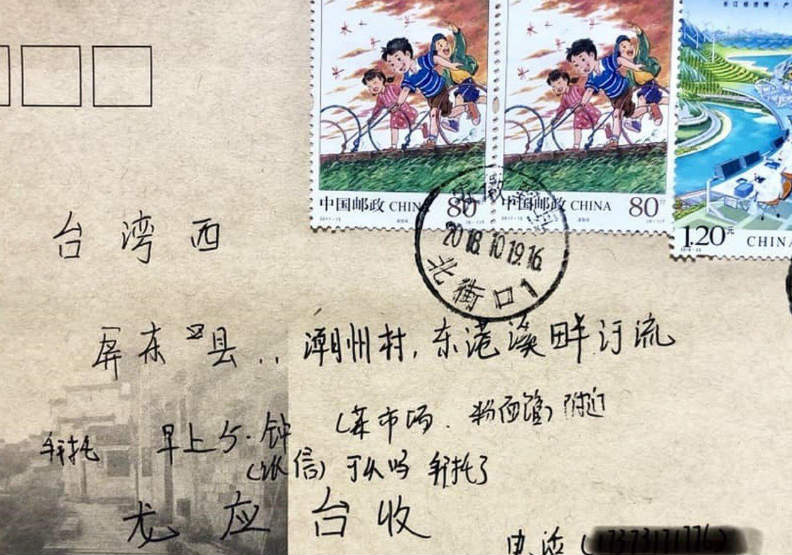 中国邮政 CHINA 80分
中国邮政 CHINA 80分
1.20元 CHINA
2018.10.19.16
北街口1
台湾西
屏东 县..潮州村,东港溪畔汙流
早上5.钟 (菜市场.粉面馆)附近
拜托 (收信)可以吗 拜托了
龙应台收
电话(